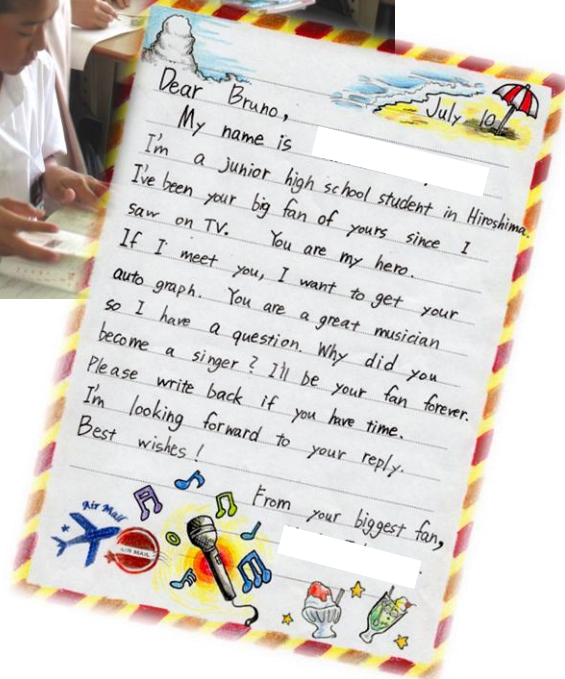 Dear Bruno,
July 10
My name is
I'm a junior high school student in Hiroshima.
I've been your big fan of yours since I
saw on TV. You are my hero.
If I meet you, I want to get your
auto graph. You are a great musician
so I have a question. Why did you
become a singer? I'll be your fan forever.
Please write back if you have time.
I'm looking forward to your reply.
Best wishes!
From your biggest fan,
Air Mail
AIR MAIL